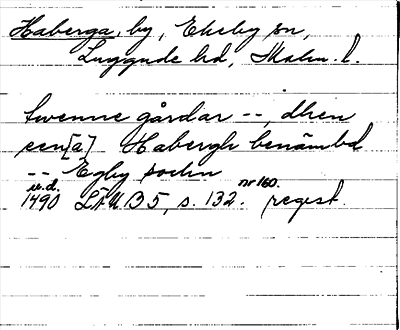 Haberga, by, Ekeby sn,
Luggude hd, Malm. l.
twenne gårdar --, dhen
een[a] Habergh benämbd
-- Egby sochn
u.d. nr 160.
1490 LÄU B 5, s. 132. regest